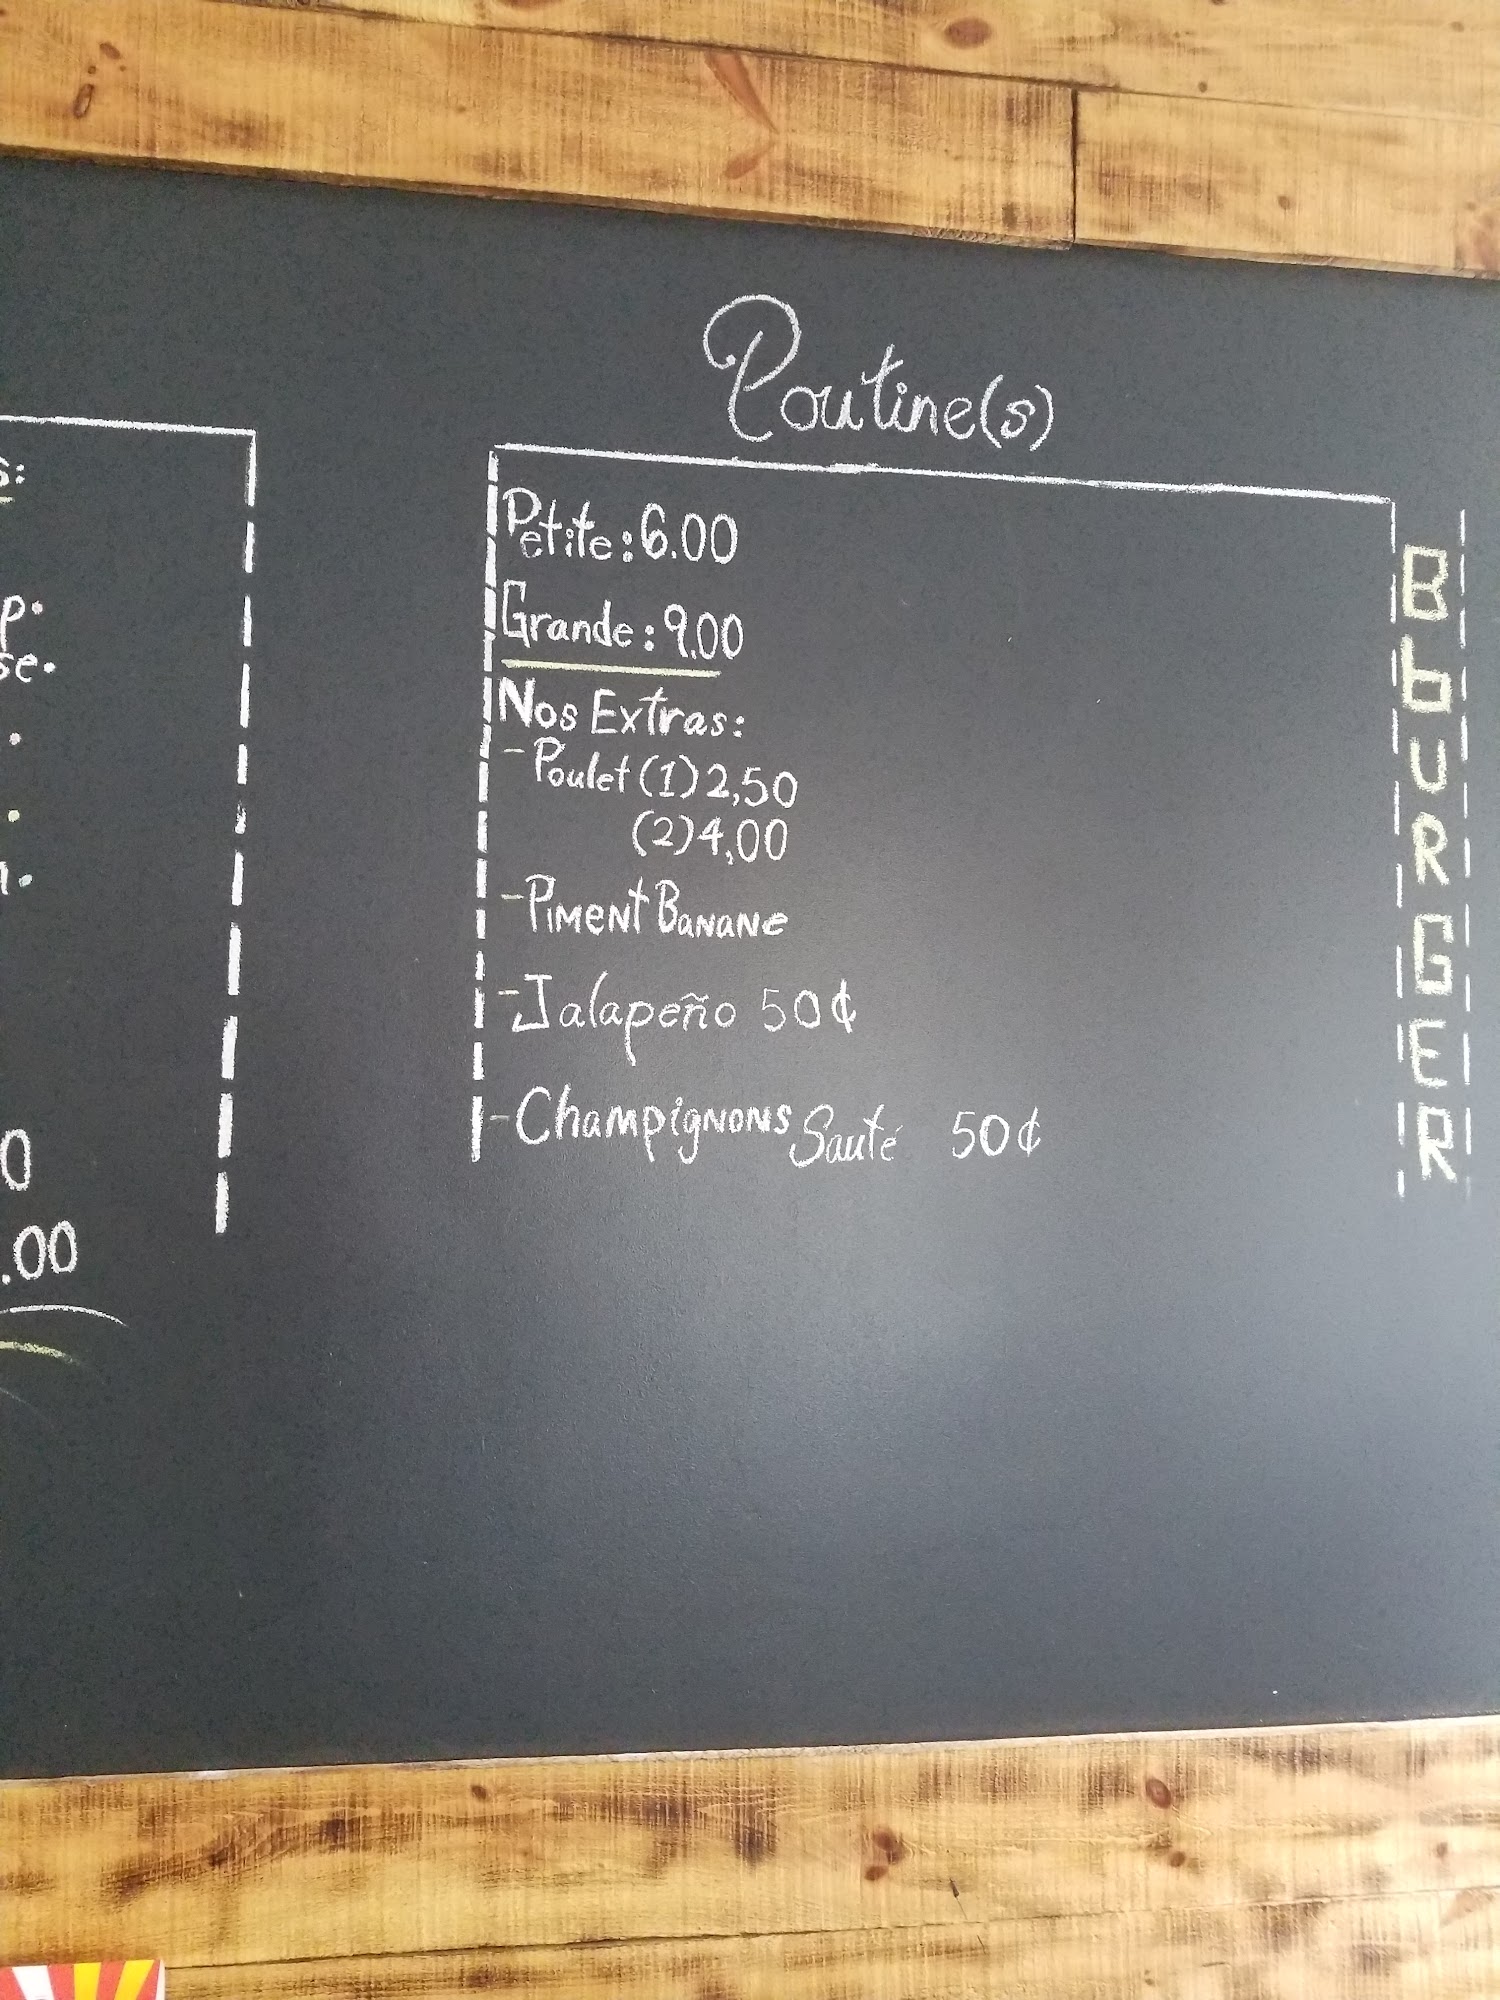 Poutine(s)
Petite: 6.00
Grande: 9.00
Nos Extras:
- Poulet (1) 2,50
(2) 4,00
- Piment Banane
- Jalapeño 50¢
- Champignons Sauté 50¢
BbURGER
s:
p.
se.
.
.
0
.00